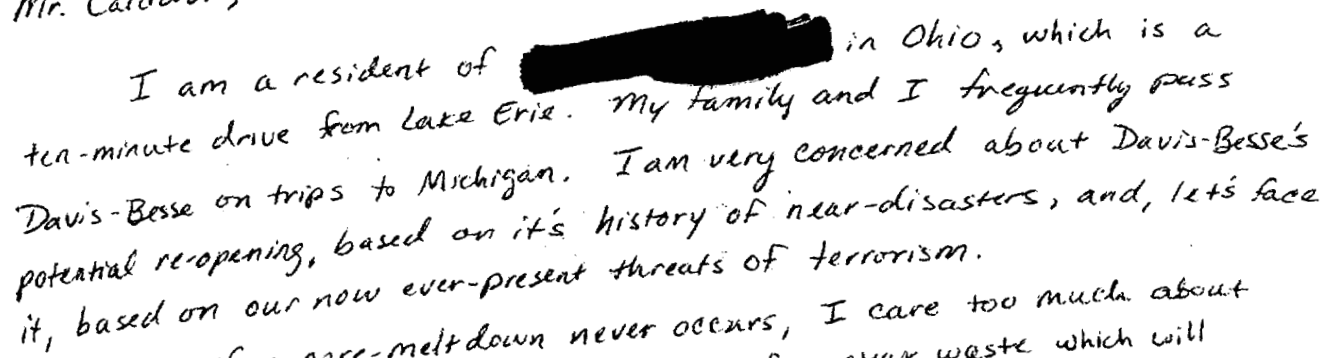 Mr.
I am a resident of in Ohio, which is a
ten-minute drive from Lake Erie. My family and I frequently pass
Davis-Besse on trips to Michigan. I am very concerned about Davis-Besse's
potential re-opening, based on it's history of near-disasters, and, let's face
it, based on our now ever-present threats of terrorism.
-meltdown never occurs, I care too much about
waste which will